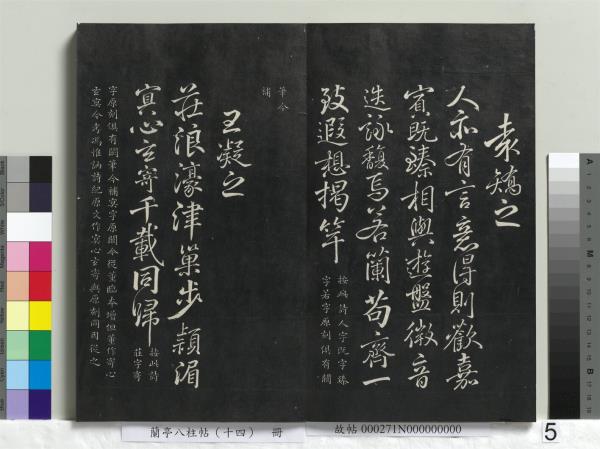 袁嶠之
人亦有言意得則歡嘉
賓既臻相與遊盤微音
迭詠馥焉若蘭苟齊一
致遐想揭竿
按此詩人字既字臻
字若字原刻俱有闕
筆今
補
王凝之
莊浪濠津巢步潁湄
冥心玄寄千載同歸
按此詩
莊字寄
字原刻俱有闕筆今補冥字原闕今從董臨本增但董作寄心
玄冥今考馮惟訥詩紀原文作冥心玄寄與原刻同因從之
蘭亭八柱帖（十四） 冊
故帖 000271N000000000
5